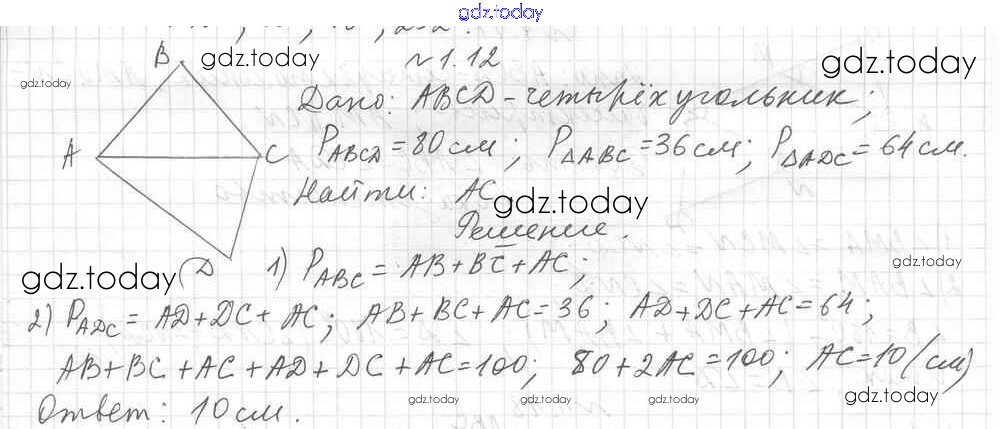 gdz.today
№1.12
gdz.today
gdz.today
gdz.today
B
Дано: ABCD – четырёхугольник;
A
C
P_ABCD = 80 см; P_ΔABC = 36 см; P_ΔADC = 64 см.
Найти: AC
gdz.today
Решение.
gdz.today
D
1) P_ABC = AB + BC + AC;
2) P_ADC = AD + DC + AC; AB + BC + AC = 36; AD + DC + AC = 64;
AB + BC + AC + AD + DC + AC = 100; 80 + 2AC = 100; AC = 10 (см)
Ответ: 10 см.
gdz.today
gdz.today
gdz.today
gdz.today